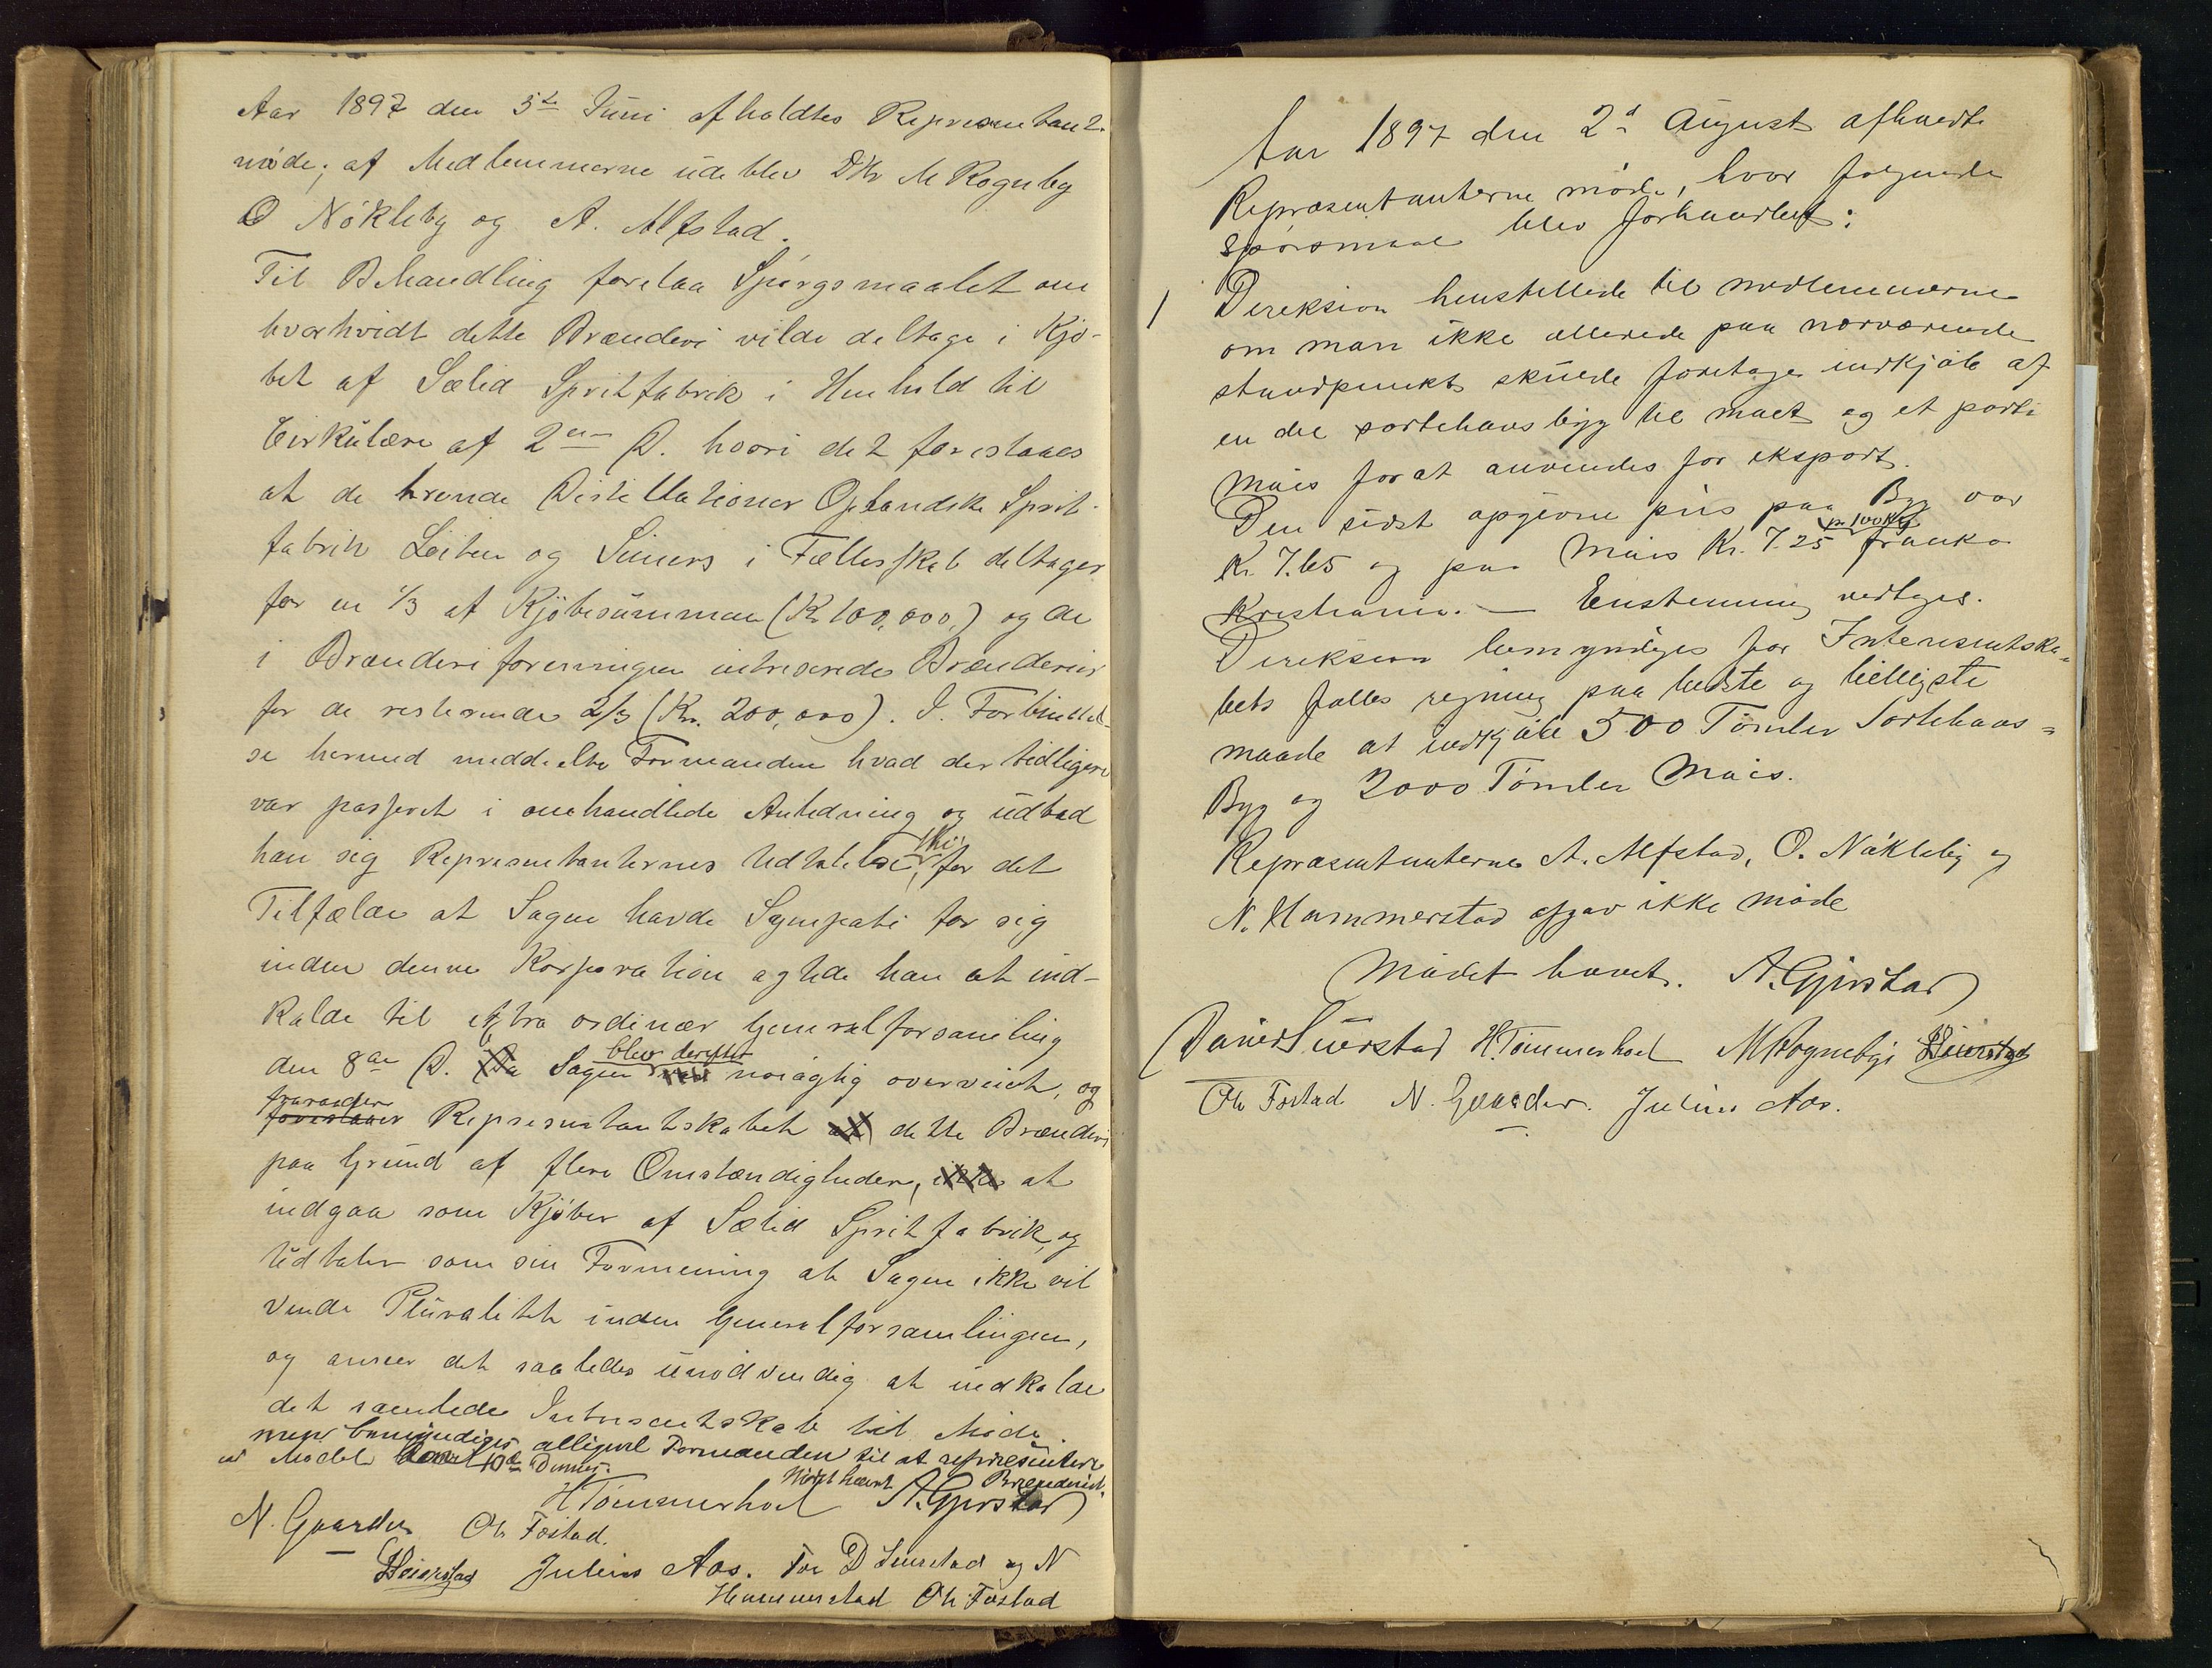 Aar 1897 den 5te Juni afholdtes Representant-
möde; af Medlemmerne udeblev DHr M Rognleby
O Nökleby og A. Alfstad.
Til Behandling forelaa Spörgsmaalet om
hvorhvidt dette Brænderi vilde deltage i Kjö-
bet af Sælid Spritfabrik i Henhold til
Cirkulære af 2den D. hvori det forestaaes
at de trende Distillationer Oplandske Sprit-
fabrik Löiten og Siiners i Fællesskab deltager
for en 1/3 af Kjöbesummen (Kr 100,000,) og de
i Brænderiforeningen intreserede Brænderier
for de resterende 2/3 (Kr. 200,000). I Forbindel-
se hermed meddelte Formanden hvad der tidligere
var passeret i omhandlede Anledning og udbad
han sig Representanternes Udtalelse, thi for det
Tilfælde at Sagen havde Sympati for sig
inden denne Korporation agtede han at ind-
kalde til extra ordinær Generalforsamling
den 8de D. Da Sagen blev derefter nöiagtig overveiet, og
fraraader forestaaer Representantskabet at dette Brænderi
paa Grund af flere Omstændigheder, ikke at
indgaa som Kjöber af Sælid Spritfabrik, og
Udtaler som sin Formening at Sagen ikke vil
vinde Pluralitet inden Generalforsamlingen,
og anseer det saaledes unödvendig at indkalde
det samlede Interesentskab til Möde.
men bemyndiges alligevel Formanden til at representere
ved Mödet den 10de Dennes. Brænderiet.
Mödet hævet
HTömmerhol A. Gjerstad
N. Gaarder Oh Fostad.
Heierstad Julius Aas. For D Suerstad og N
Hammerstad Oh. Fostad
Aar 1897 den 2d August afhældte
Repræsentanterne möde, hvor følgende
spörsmaal blev forhandlet:
1 Direksion henstillede til medlemmerne
om man ikke allerede paa nærværende
standpunkt skulde foretage indkjöb af
en del sortehavsbyg til malt og et parti
Mais for at anvendes for eksport.
Den sidst opgivne pris paa Byg var
pr 100 Kg
Kr. 7.65 og paa Mais Kr. 7.25 franko
Kristiania. — Enstemmig vedtages.
Direksion bemyndiges for Interesentska=
bets fælles regning paa bedste og billigste
maade at indkjöbe 500 Tönder Sortehavs=
Byg og 2000 Tönder Mais.
Repræsentanterne A. Alfstad, O. Nökleby og
N. Hammerstad afgav ikke möde
Mödet hævet. A. Gjerstad
Daniel Suerstad H. Tömmerhol M Rognebye Heierstad
Oh Fostad N. Gaarder. Julius Aas.